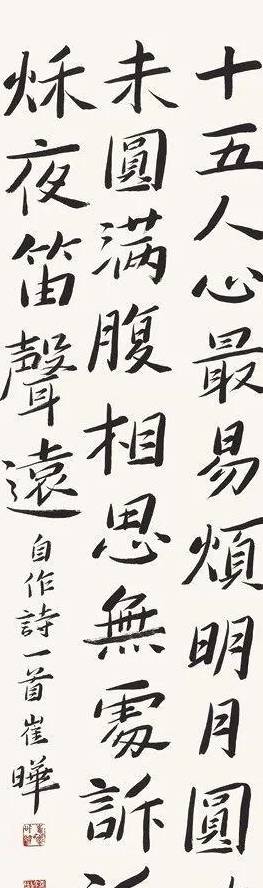 十五人心最易煩明月圓
未圓滿腹相思無處訴
秌夜笛聲遠
自作詩一首崔曄